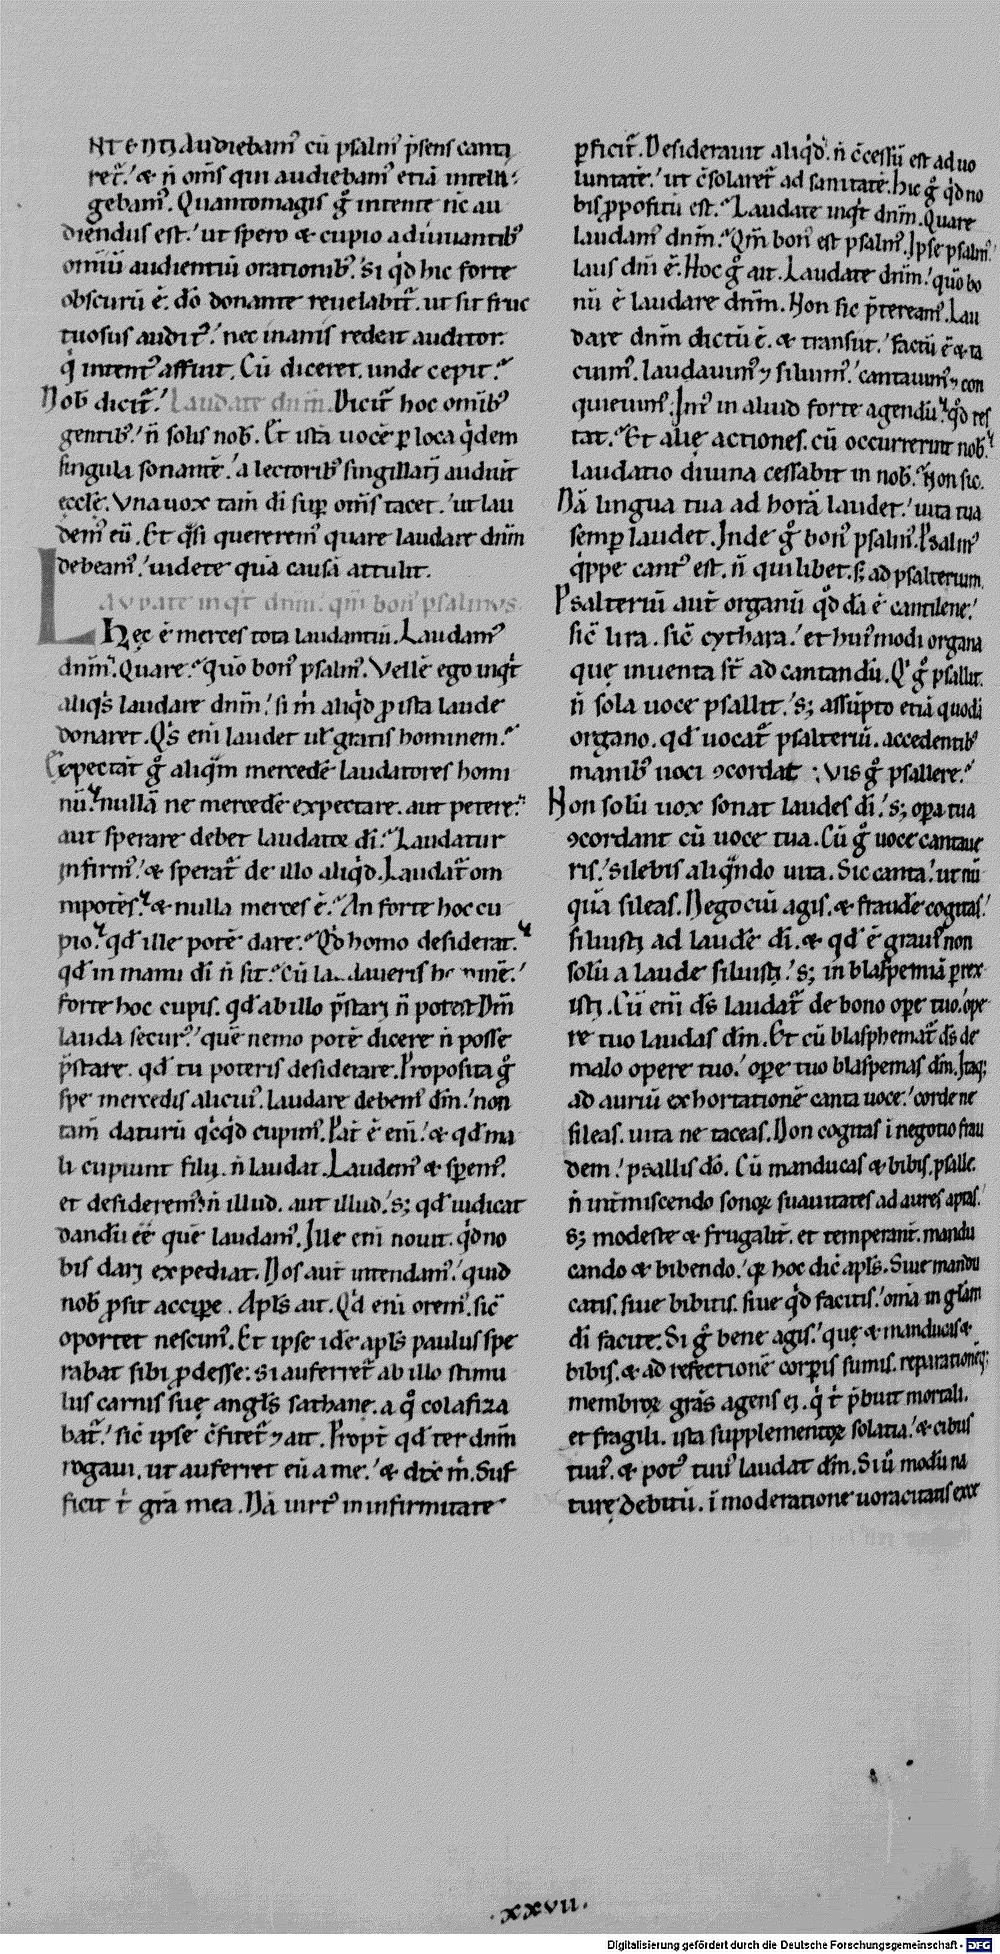 NTENTJ Audiebam᷒ cū psalm᷒ p̄sens canta
ret᷒.' & n̄ om̄s qui audiebam᷒ etiā intelli-
gebam᷒. Quantomagis g̊ intente n̄c au
diendus est.' ut spero & cupio adiuuantib᷒
omniū audientiū orationib᷒. si qd̓ hic forte
obscurū ē. dō donante reuelabit᷒. ut sit fruc
tuosus audit᷒.' nec inanis redeat auditor.
q̇ intent᷒ affuit. Cū diceret. unde cepit.
Nob̄ dicit᷒.' Laudate dnm̄. Dicit᷒ hoc omīb᷒
gentib᷒.' n̄ solis nob̄. Et ista uocē p loca q̇dem
singula sonantē.' a lectorib᷒ singillatī audiūt
ecclę̄. Vna uox tam̄ dī sup om̄s tacet.' ut lau
dem᷒ eū. Et q̄si quererem᷒ quare laudare dnm̄
debeam᷒.' uidete quā causā attulit.
LAVDATE inqt̓ dnm̄.' qm̄ bon᷒ psalmvs.
Hęc ē merces tota laudantiū. Laudam᷒
dnm̄. Quare. quō bon᷒ psalm᷒. Vellē ego inqt̓
aliqs̓ laudare dnm̄.' si m̓ aliqd̓ p ista laude
donaret. Qs̓ eni laudet ul̄ gratis hominem.
Expectāt g̊ aliq̄m mercedē laudatores homi
nū. nullā ne mercedē expectare. aut petere.
aut sperare debet laudator dī. Laudatur
infirm᷒.' & sperat᷒ de illo aliqd̓. Laudat᷒ om
nipotēs. & nulla merces ē. An forte hoc cu
pio. qd̄ ille potē dare. Qd̓ homo desiderat.
qd̄ in manu dī n̄ sit. Cū laudaueris hominē.'
forte hoc cupis. qd̄ ab illo p̄stari n̄ potest Dm̄
lauda secur᷒.' quē nemo potē dicere n̄ posse
p̄stare. qd̄ tu poteris desiderare. Proposita g̊
spe mercedis alicui᷒. laudare debem᷒ dm̄.' non
tam̄ daturū q̇cq̇d cupim᷒. Pat̄ ē enī.' & qd̄ ma
li cupiunt filii. n̄ laudat. Laudem᷒ & sperem᷒.
et desiderem᷒ n̄ illud. aut illud.' s; qd̄ iudicat
dandū eē quē laudam᷒. Ille eni nouit. qd̓ no
bis darī expediat. Nos aut̄ intendam᷒.' quid
nob̄ psit accipe. Apl̄s ait. Qd̓ eni orem᷒. sic̄
oportet nescim᷒. Et ipse idē apl̄s paulus spe
rabat sibi pdesse: si auferret᷒ ab illo stimu
lus carnis suę angl̄s sathanę. a q̊ colafiza
bat᷒.' sic̄ ipse c̄fitet᷒ ⁊ ait. Propt̄ qd̄ ter dnm̄
rogaui. ut auferret eū a me.' & dix̄ m̓. Suf
ficit t̓ gr̄a mea. Nā uirt᷒ in infirmitate
pficit᷒. Desiderauit aliqd̓. n̄ c̄cessū est ad uo
luntatē.' ut c̄solaret᷒ ad sanitatē. hic g̊ qd̓ no
bis ppositū est. Laudate inqt̓ dnm̄. Quare
laudam᷒ dnm̄. Qm̄ bon᷒ est psalm᷒. Ipse psalm᷒.'
laus dnī ē. Hoc g̊ ait. Laudate dnm̄.' quō bo
nū ē laudare dnm̄. Non sic p̄teream᷒. Lau
dare dnm̄ dictū ē. & transiit.' factū ē & ta
cuim᷒. laudauim᷒ ⁊ siluim᷒.' cantauim᷒ ⁊ con
quieuim᷒. Im᷒ in aliud forte agendū. qd̓ res
tat. Et alię actiones. cū occurrerint nob̄.
laudatio diuina cessabit in nob̄. Non sic.
Nā lingua tua ad horā laudet.' uita tua
semp laudet. Inde g̊ bon᷒ psalm᷒. Psalm᷒
q̇ppe cant᷒ est. n̄ quilibet. s; ad psalterium.
Psalteriū aut̄ organū qd̓dā ē cantilenę.'
sic̄ lira. sic̄ cythara.' et hui᷒modi organa
quę inuenta st̄ ad cantandū. Q̇ g̊ psallit.
n̄ sola uoce psallit.' s; assūpto etiā quodā
organo. qd̄ uocat᷒ psalteriū. accedentib᷒
manib᷒ uoci ꝯcordat ; Vis g̊ psallere.
Non solū uox sonat laudes dī.' s; opa tua
ꝯcordant cū uoce tua. Cū g̊ uoce cantaue
ris.' silebis aliq̄ndo uita. Sic canta.' ut nū
quā sileas. Negociū agis. & fraudē cogitas.'
siluisti ad laudē dī. & qd̄ ē graui᷒ non
solū a laude siluisti.' s; in blaspemiā prex
isti. Cū enī ds̄ laudat᷒ de bono ope tuo.' ope
re tuo laudas dm̄. Et cū blasphemat᷒ ds̄ de
malo opere tuo.' ope tuo blaspemas dm̄. Itaq;
ad auriū exhortationē canta uoce.' corde ne
sileas. uita ne taceas. Non cogitas ī negotio frau
dem.' psallis dō. Cū manducas & bibis. psalle.
n̄ int̄miscendo sonoꝝ suauitates ad aures aptas.'
s; modeste & frugalit̄. et temperant̄. mandu
cando & bibendo.' q̄ hoc dic̄ apl̄s. Siue mandu
catis. siue bibitis. siue qd̓ facitis.' omīa in gl̄am
dī facite. Si g̊ bene agis.' quę & manducas &
bibis. & ad refectionē corpis sumis. reparationeq;
membroꝝ gr̄as agens ei. q̇ t̓ p̄buit mortali.
et fragili. ista supplementoꝝ solatia.' & cibus
tuus. & pot᷒ tuus laudat dm̄. Si ū modū na
turę debitū. ī moderatione uoracitatis exce
.xxvii.
Digitalisierung gefördert durch die Deutsche Forschungsgemeinschaft - DFG